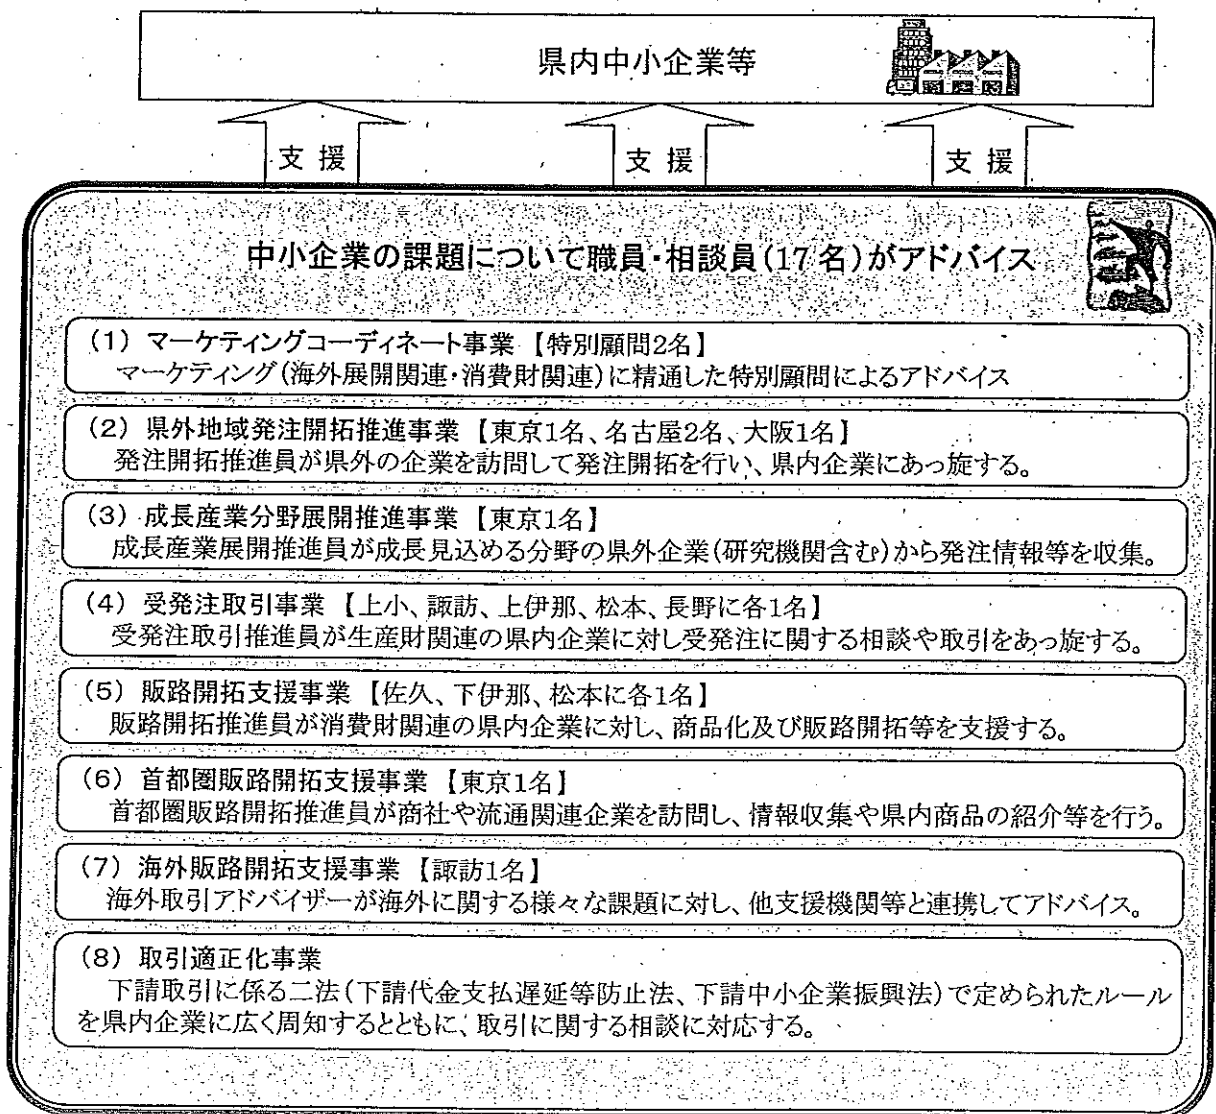 県内中小企業等
支援 支援 支援
中小企業の課題について職員・相談員(17名)がアドバイス
(1) マーケティングコーディネート事業 【特別顧問2名】
マーケティング(海外展開関連・消費財関連)に精通した特別顧問によるアドバイス
(2) 県外地域発注開拓推進事業 【東京1名、名古屋2名、大阪1名】
発注開拓推進員が県外の企業を訪問して発注開拓を行い、県内企業にあっ旋する。
(3) 成長産業分野展開推進事業 【東京1名】
成長産業展開推進員が成長見込める分野の県外企業(研究機関含む)から発注情報等を収集。
(4) 受発注取引事業 【上小、諏訪、上伊那、松本、長野に各1名】
受発注取引推進員が生産財関連の県内企業に対し受発注に関する相談や取引をあっ旋する。
(5) 販路開拓支援事業 【佐久、下伊那、松本に各1名】
販路開拓推進員が消費財関連の県内企業に対し、商品化及び販路開拓等を支援する。
(6) 首都圏販路開拓支援事業 【東京1名】
首都圏販路開拓推進員が商社や流通関連企業を訪問し、情報収集や県内商品の紹介等を行う。
(7) 海外販路開拓支援事業 【諏訪1名】
海外取引アドバイザーが海外に関する様々な課題に対し、他支援機関等と連携してアドバイス。
(8) 取引適正化事業
下請取引に係る二法(下請代金支払遅延等防止法、下請中小企業振興法)で定められたルール
を県内企業に広く周知するとともに、取引に関する相談に対応する。